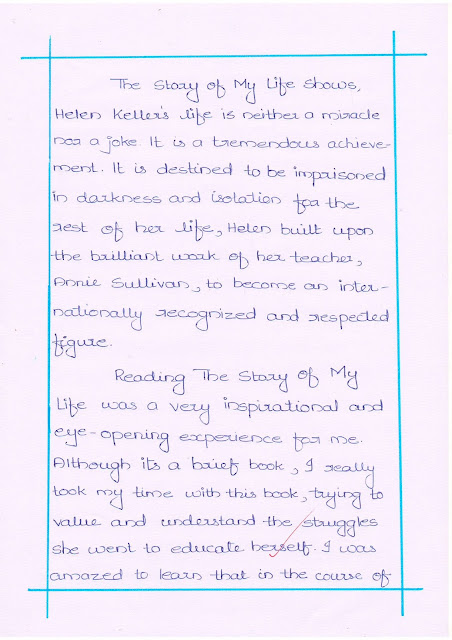 The Story of My Life shows,
Helen Keller's life is neither a miracle
nor a joke. It is a tremendous achieve-
ment. It is destined to be imprisoned
in darkness and isolation for the
rest of her life, Helen built upon
the brilliant work of her teacher,
Annie Sullivan, to become an inter-
nationally recognized and respected
figure.
Reading The Story of My
Life was a very inspirational and
eye-opening experience for me.
Although its a brief book, I really
took my time with this book, trying to
value and understand the struggles
she went to educate herself. I was
amazed to learn that in the course of